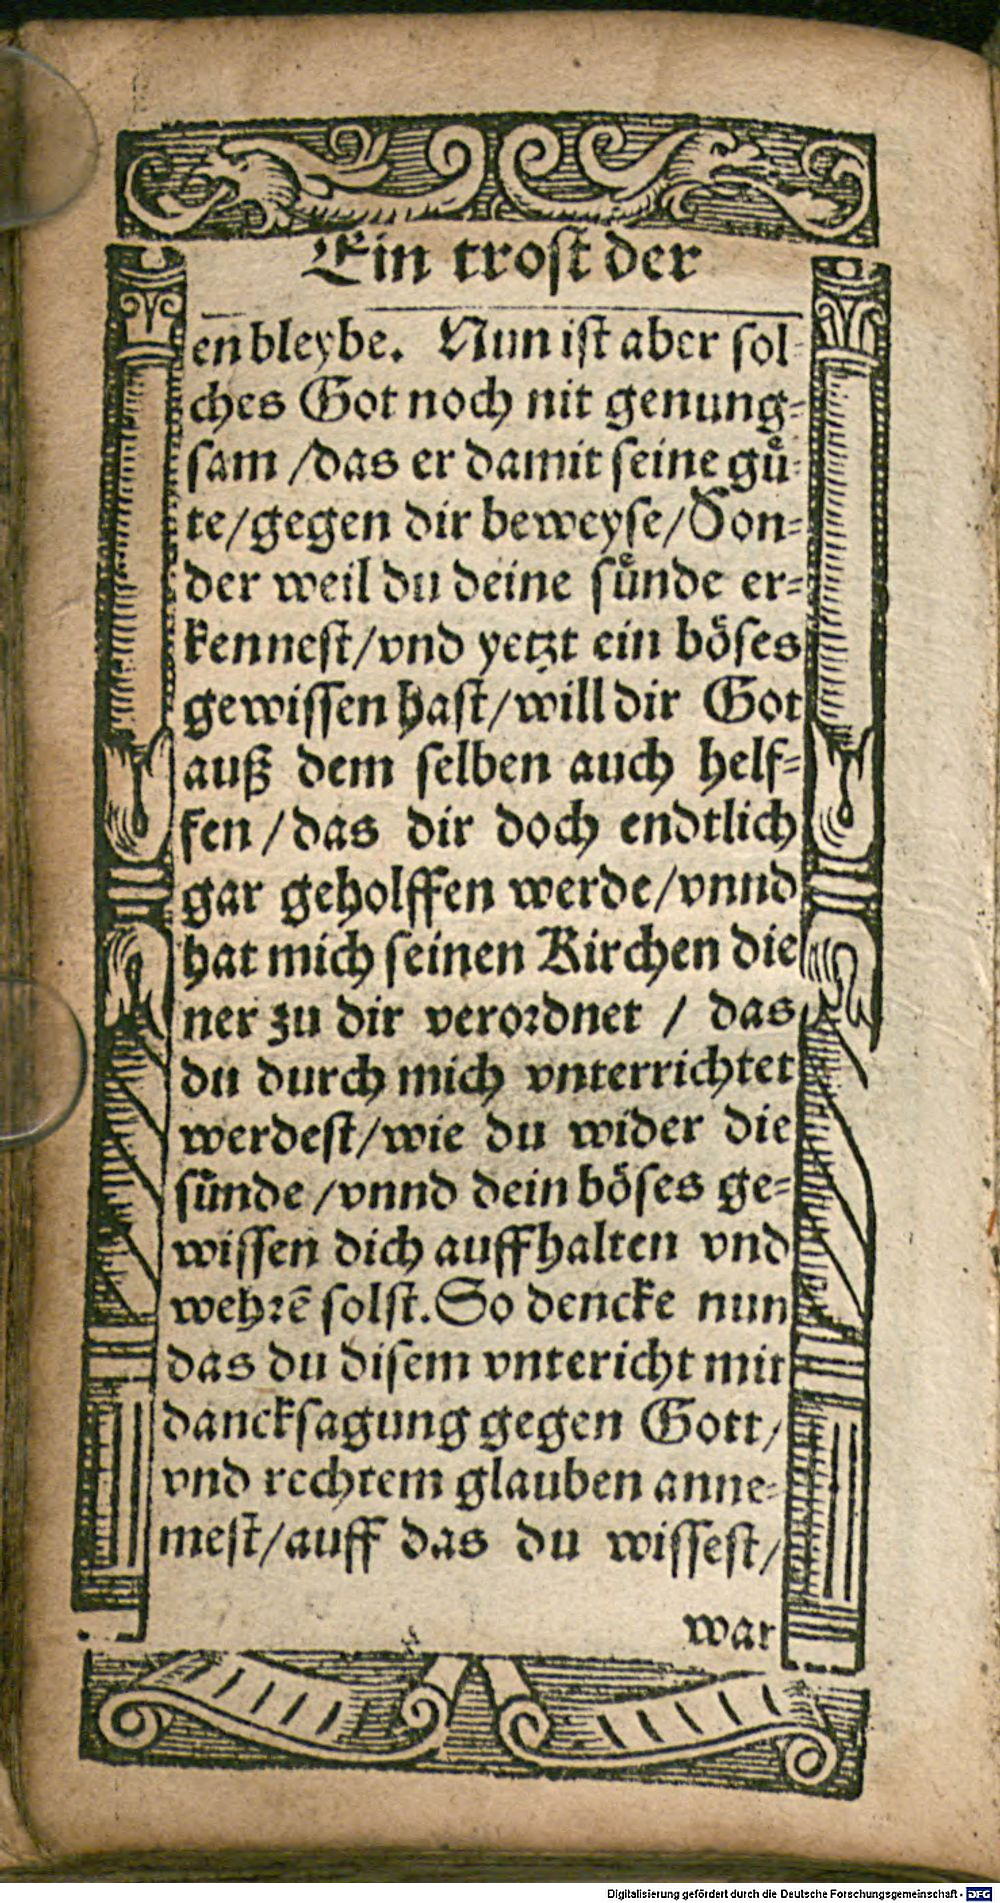 Ein trost der
en bleybe. Nun ist aber sol-
ches Got noch nit genung-
sam /das er damit seine guͤ-
te/gegen dir beweyse/Son-
der weil du deine suͤnde er-
kennest/vnd yetzt ein boͤses
gewissen hast/will dir Got
auß dem selben auch helf-
fen /das dir doch endtlich
gar geholffen werde/vnnd
hat mich seinen Kirchen die
ner zu dir verordnet / das
du durch mich vnterrichtet
werdest/wie du wider die
suͤnde /vnnd dein boͤses ge-
wissen dich auffhalten vnd
wehrē solst. So dencke nun
das du disem vntericht mit
dancksagung gegen Gott/
vnd rechtem glauben anne-
mest/auff das du wissest/
war
Digitalisierung gefördert durch die Deutsche Forschungsgemeinschaft - DFG